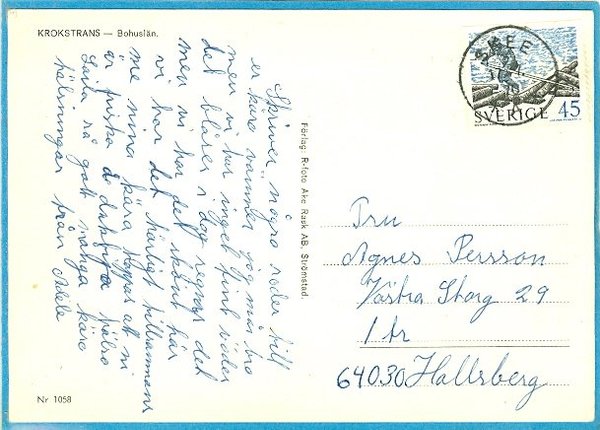 KROKSTRANS — Bohuslän.
Skriver några rader till
er kära vänner jag mår bra
men vi har inget fint väder
det blåser i dag regnar det
men vi har det skönt här
vi har det härligt tillsammans
me mina kära hoppas att ni
är friska å hälsa
Laila så gott många kära
hälsningar från Adele
Nr 1058
Förlag: R-foto Åke Rask AB, Strömstad.
SKEE
SVERIGE 45
Fru
Agnes Persson
Västra Storg 29
1 tr
64030 Hallsberg